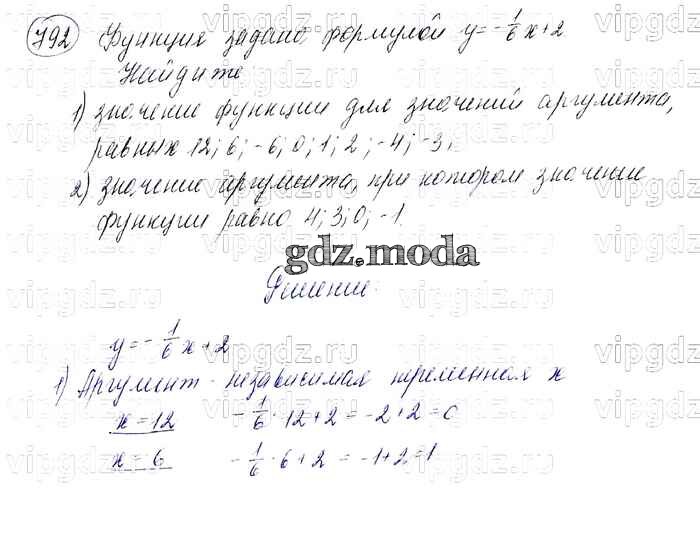 792 Функция задана формулой y = -1/6 x + 2
Найдите
1) значение функции для значений аргумента,
равных 12; 6; -6; 0; 1; 2; -4; -3;
2) значение аргумента, при котором значение
функции равно 4; 3; 0; -1.
gdz.moda
Решение:
y = -1/6 x + 2
1) Аргумент - независимая переменная x
x = 12 -1/6 · 12 + 2 = -2 + 2 = 0
x = 6 -1/6 · 6 + 2 = -1 + 2 = 1